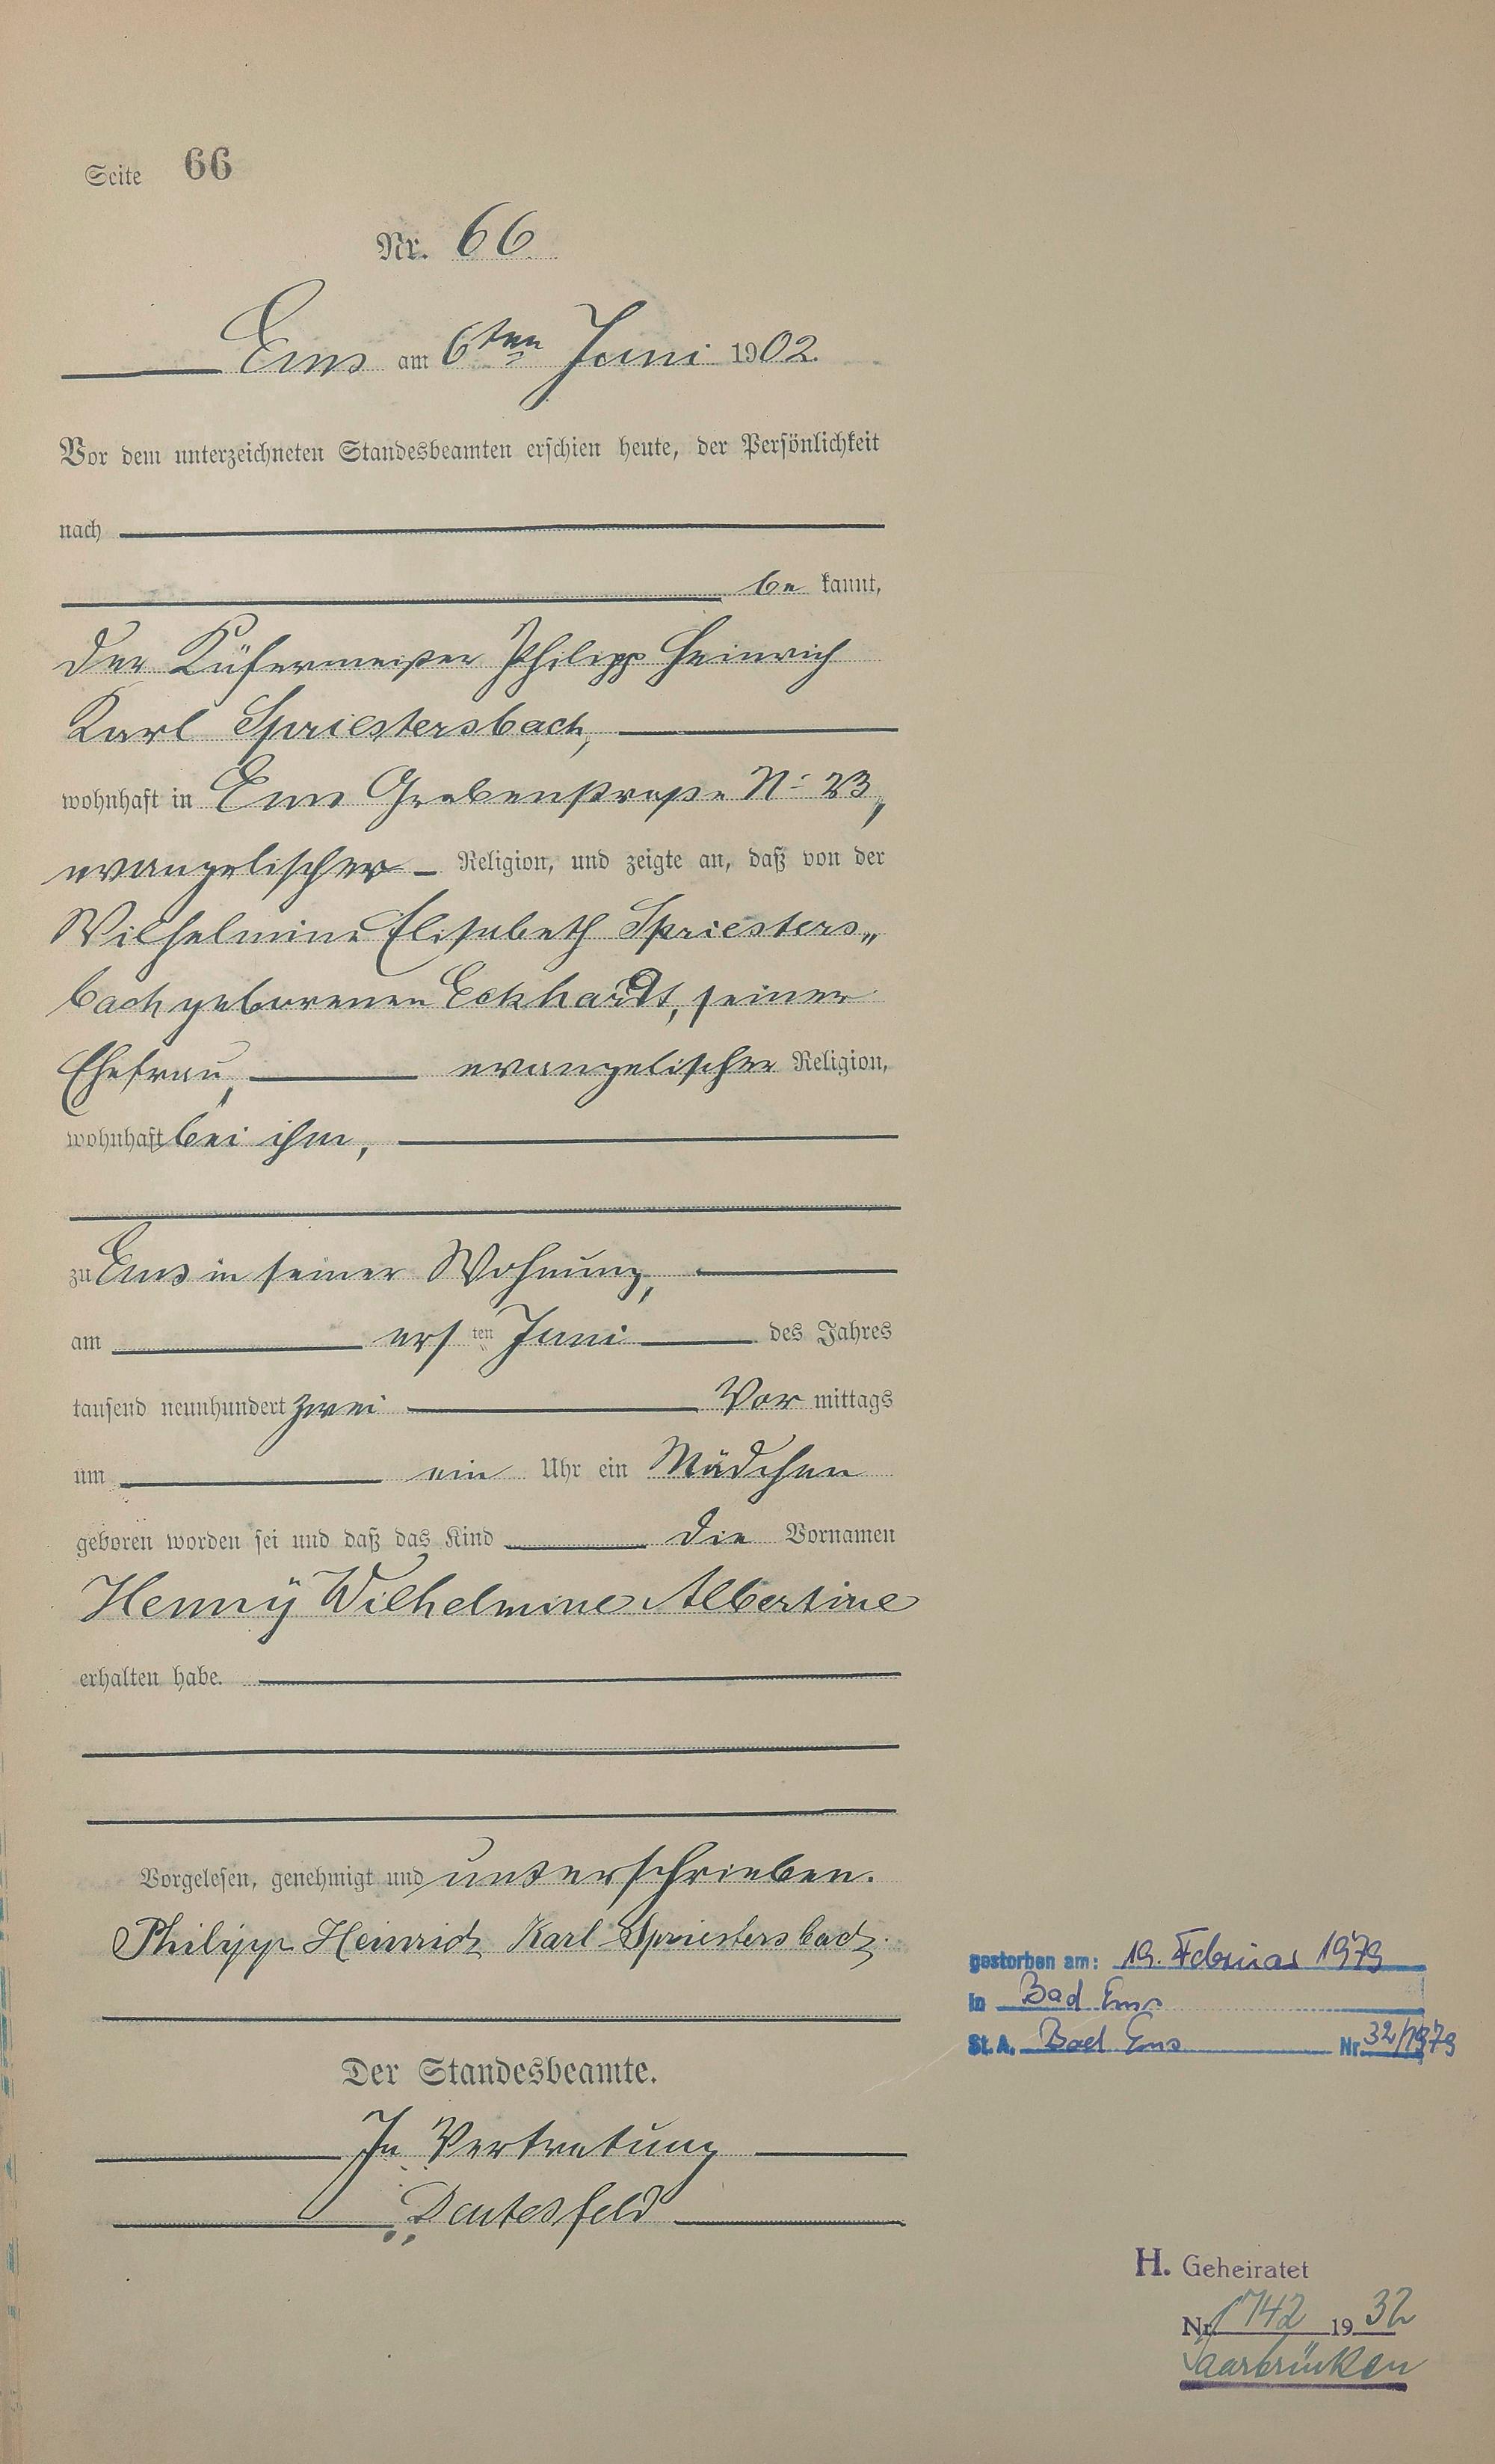 Seite 66
Nr. 66.
Ems am 6ten Juni 1902.
Vor dem unterzeichneten Standesbeamten erschien heute, der Persönlichkeit
nach
be kannt,
der Küfermeister Philipp Heinrich
Karl Spriestersbach,
wohnhaft in Ems Grabenstraße No 23,
evangelischer Religion, und zeigte an, daß von der
Wilhelmine Elisabeth Spriesters„
bach geborenen Eckhardt, seiner
Ehefrau, evangelischer Religion,
wohnhaft bei ihm,
zu Ems in seiner Wohnung,
am ers ten Juni des Jahres
tausend neunhundert zwei Vor mittags
um ein Uhr ein Mädchen
geboren worden sei und daß das Kind die Vornamen
Henny Wilhelmine Albertine
erhalten habe.
Vorgelesen, genehmigt und unterschrieben.
Philipp Heinrich Karl Spriestersbach.
gestorben am: 19. Februar 1979
in Bad Ems
St. A. Bad Ems Nr. 32/1979
Der Standesbeamte.
In Vertretung
Deutesfeld
H. Geheiratet
Nr. 1742 1932
Saarbrücken